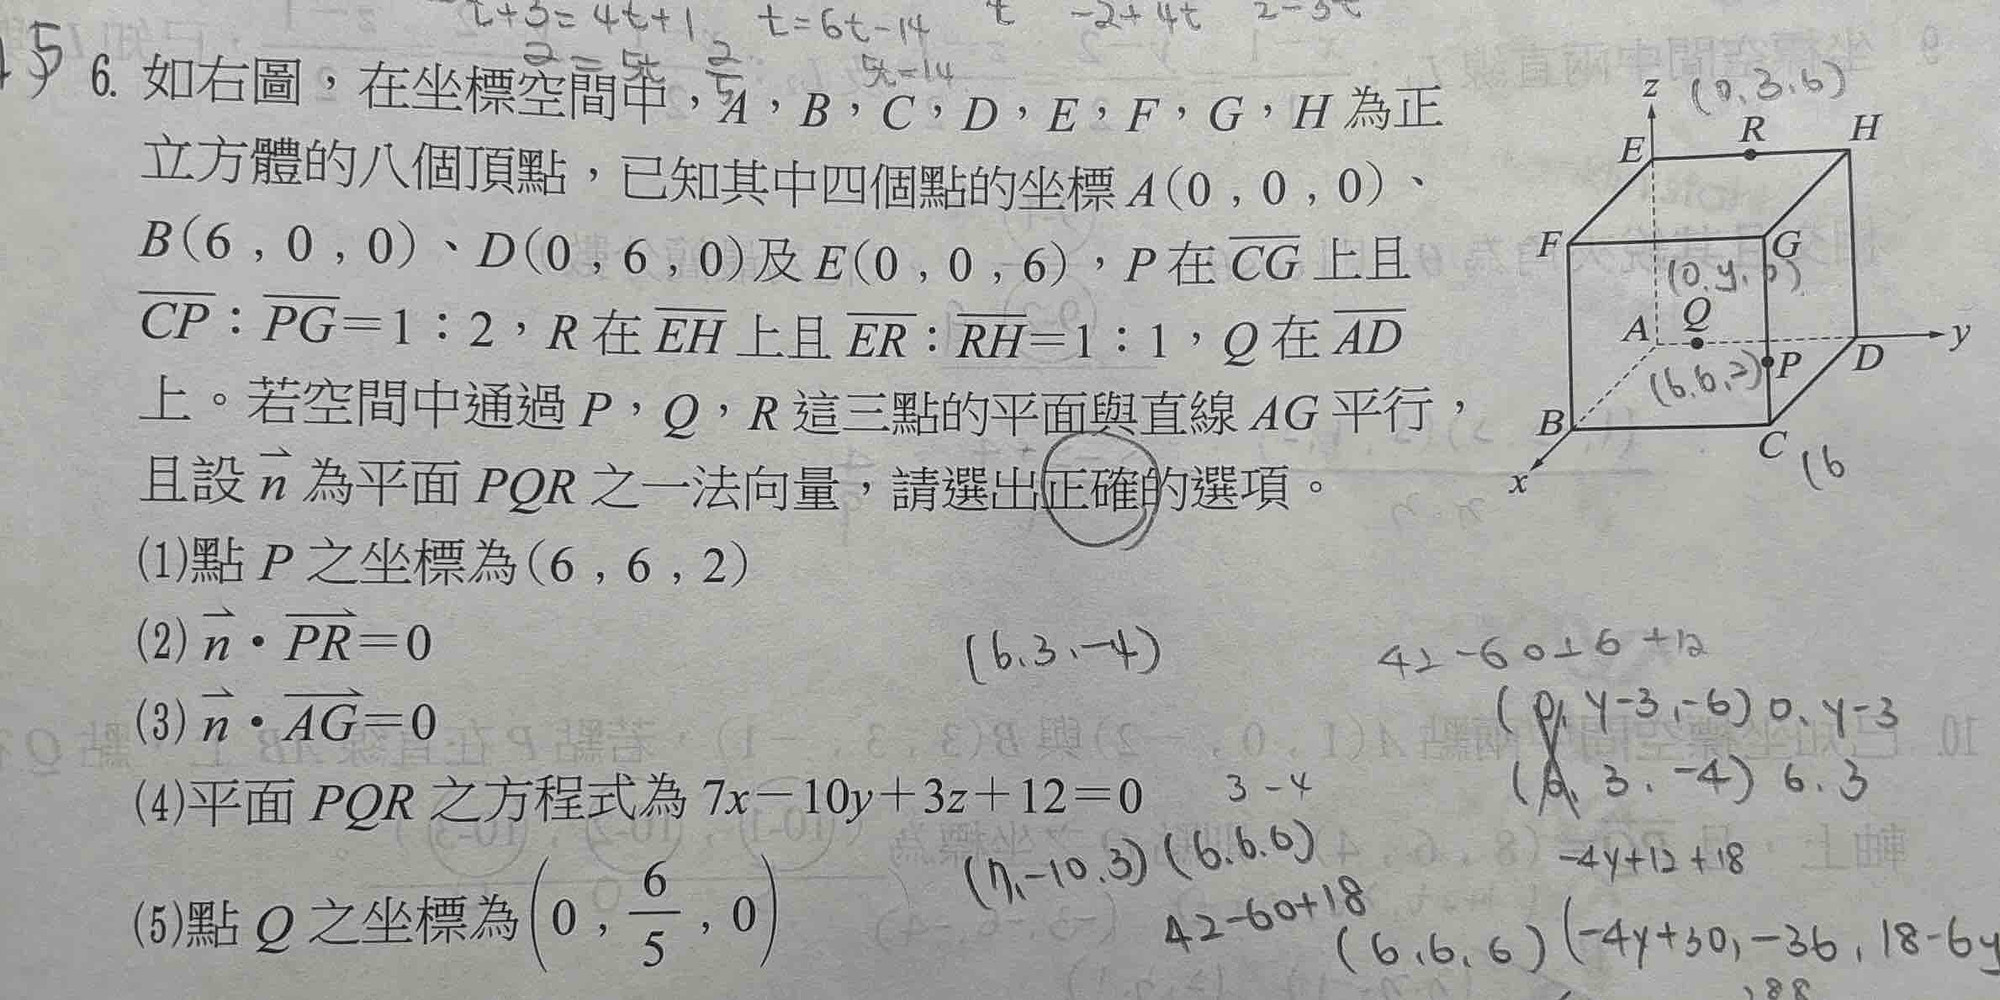 -t+3=4t+1 t=6t-14 t -2+4t 2-3t
2=5t 2/5 5t=14
15
6. 如右圖，在坐標空間中，A，B，C，D，E，F，G，H 為正
立方體的八個頂點，已知其中四個點的坐標 A(0，0，0)、
B(6，0，0)、D(0，6，0)及 E(0，0，6)，P 在 CG 上且
CP：PG＝1：2，R 在 EH 上且 ER：RH＝1：1，Q 在 AD
上。若空間中通過 P，Q，R 這三點的平面與直線 AG 平行，
且設 n 為平面 PQR 之一法向量，請選出正確的選項。
(1)點 P 之坐標為(6，6，2)
(2) n • PR＝0
(3) n • AG＝0
(4)平面 PQR 之方程式為 7x－10y＋3z＋12＝0
(5)點 Q 之坐標為(0，6/5，0)
z (0,3,6)
E R H
F G
(0,y,0)
A Q y
(6,6,2) P D
B C (6
x
(6,3,-4)
42-60+6+12
(0, y-3, -6) 0, y-3
(6, 3, -4) 6, 3
3-4
-4y+12+18
(7,-10,3) (6,6,6)
42-60+18
(6,6,6) (-4y+30, -36, 18-6y